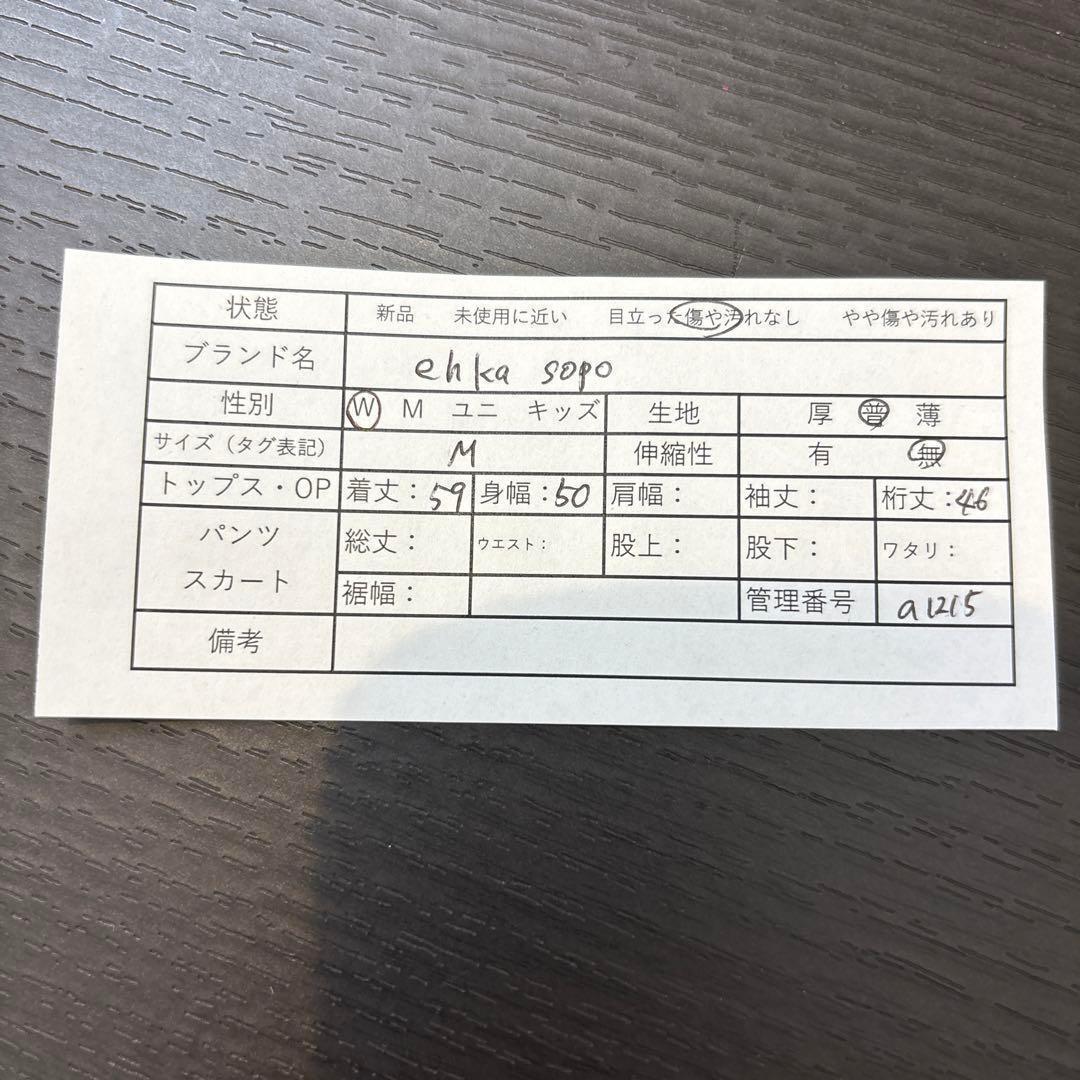 状態 新品 未使用に近い 目立った傷や汚れなし やや傷や汚れあり
ブランド名 ehka sopo
性別 W M ユニ キッズ 生地 厚 普 薄
サイズ（タグ表記） M 伸縮性 有 無
トップス・OP 着丈：59 身幅：50 肩幅： 袖丈： 裄丈：46
パンツ 総丈： ウエスト： 股上： 股下： ワタリ：
スカート 裾幅： 管理番号 a1215
備考